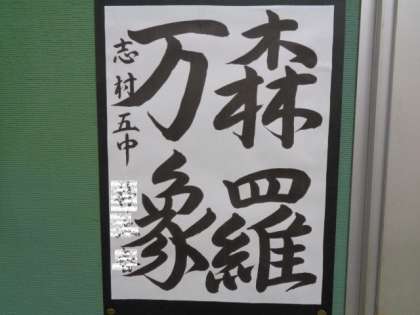 森羅
万象
志村五中